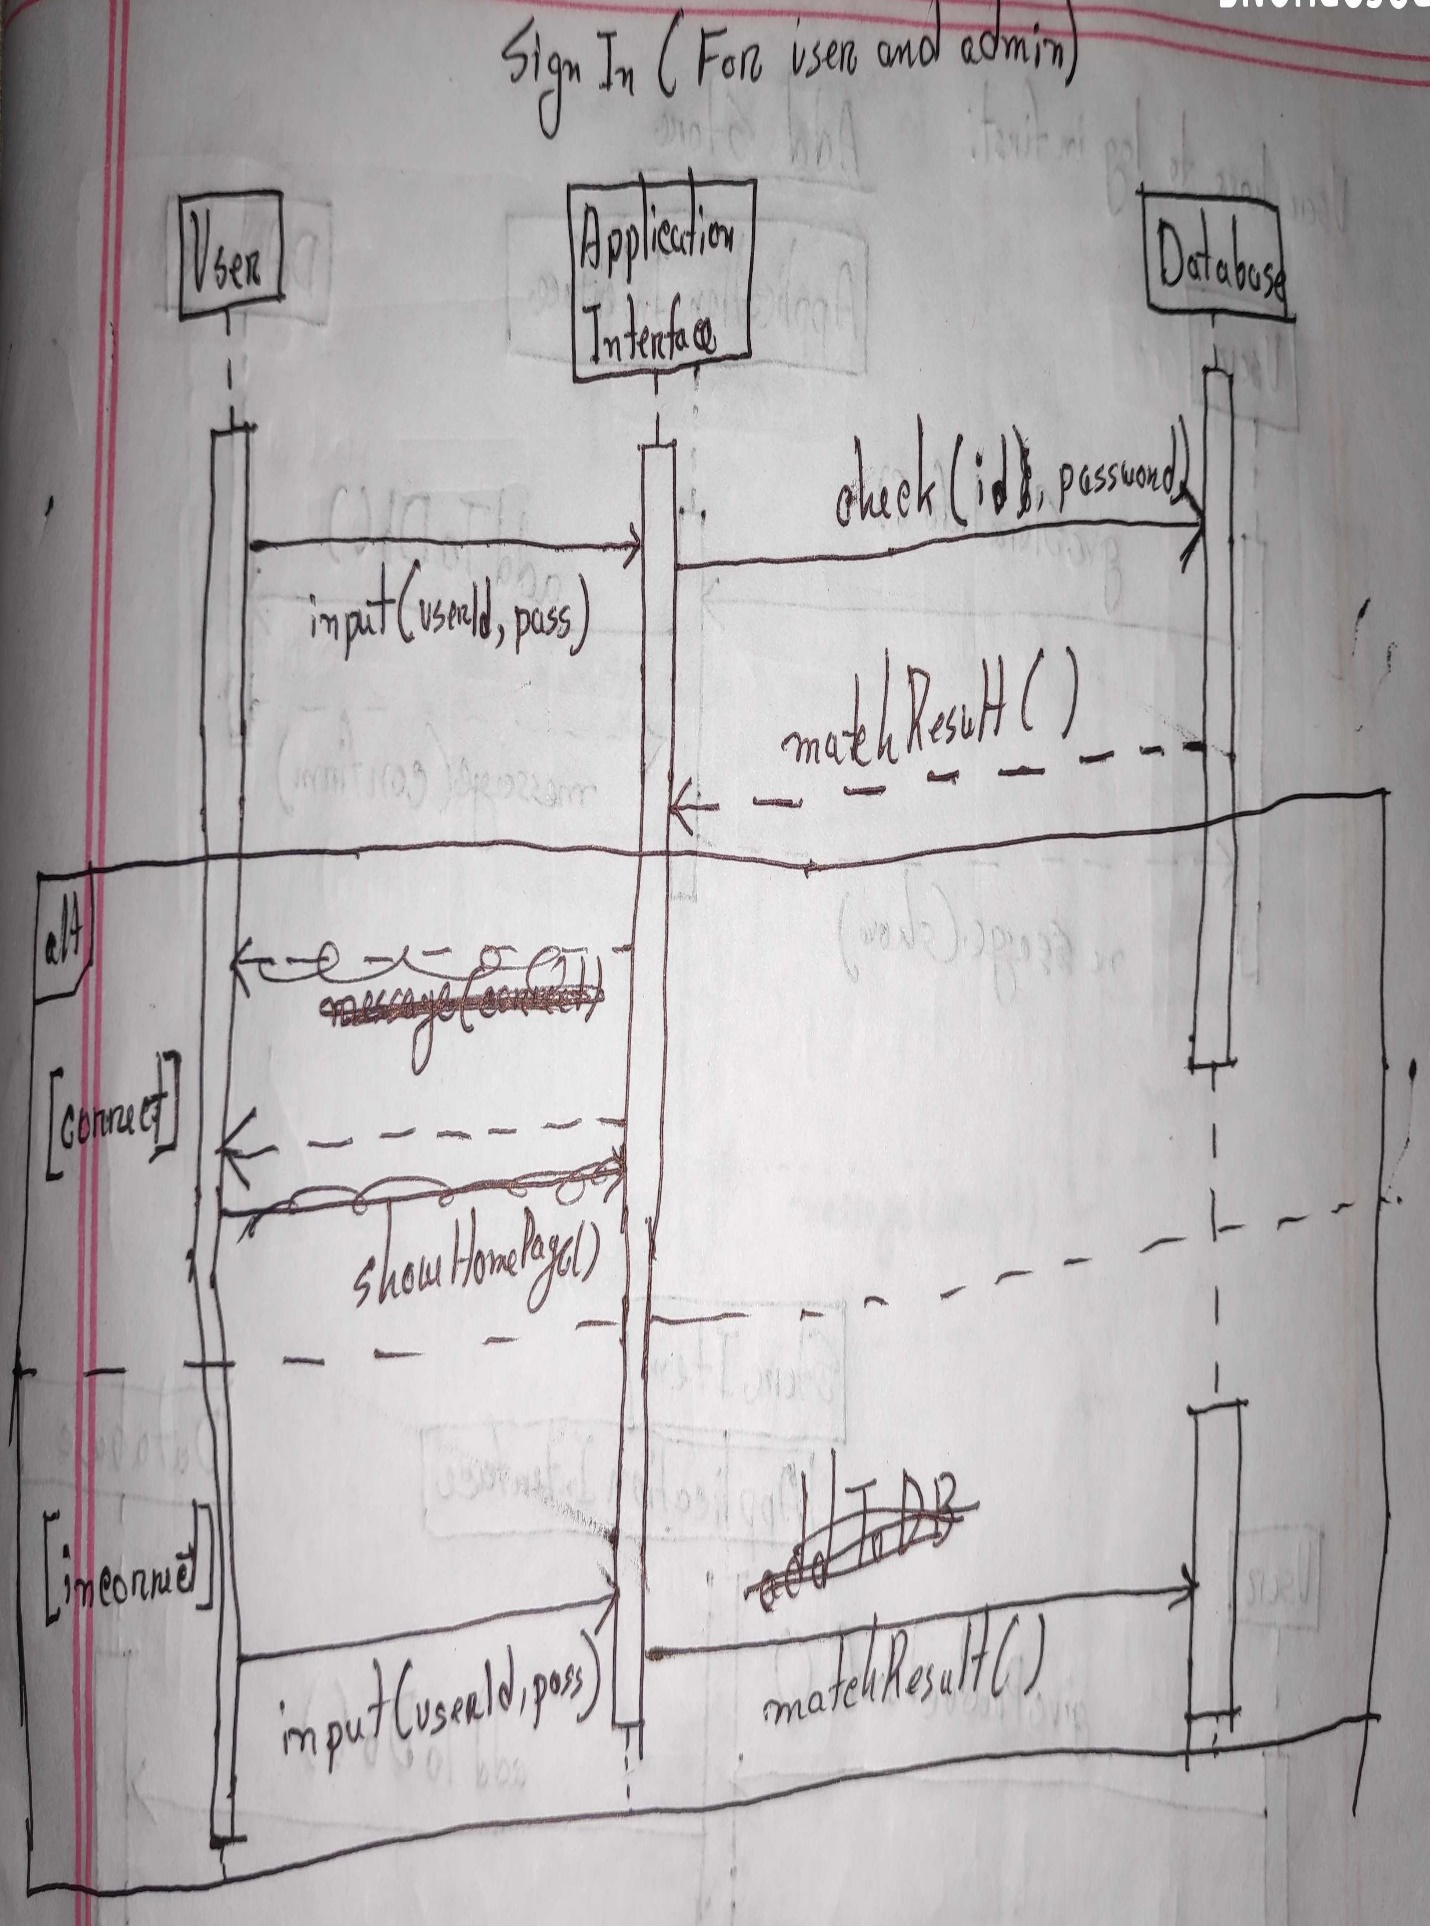 Sign In (For user and admin)
User
Application
Interface
Database
check(id, password)
input(userId, pass)
matchResult()
alt
message(correct)
[correct]
showHomePage()
[incorrect]
addToDB
input(userId, pass)
matchResult()